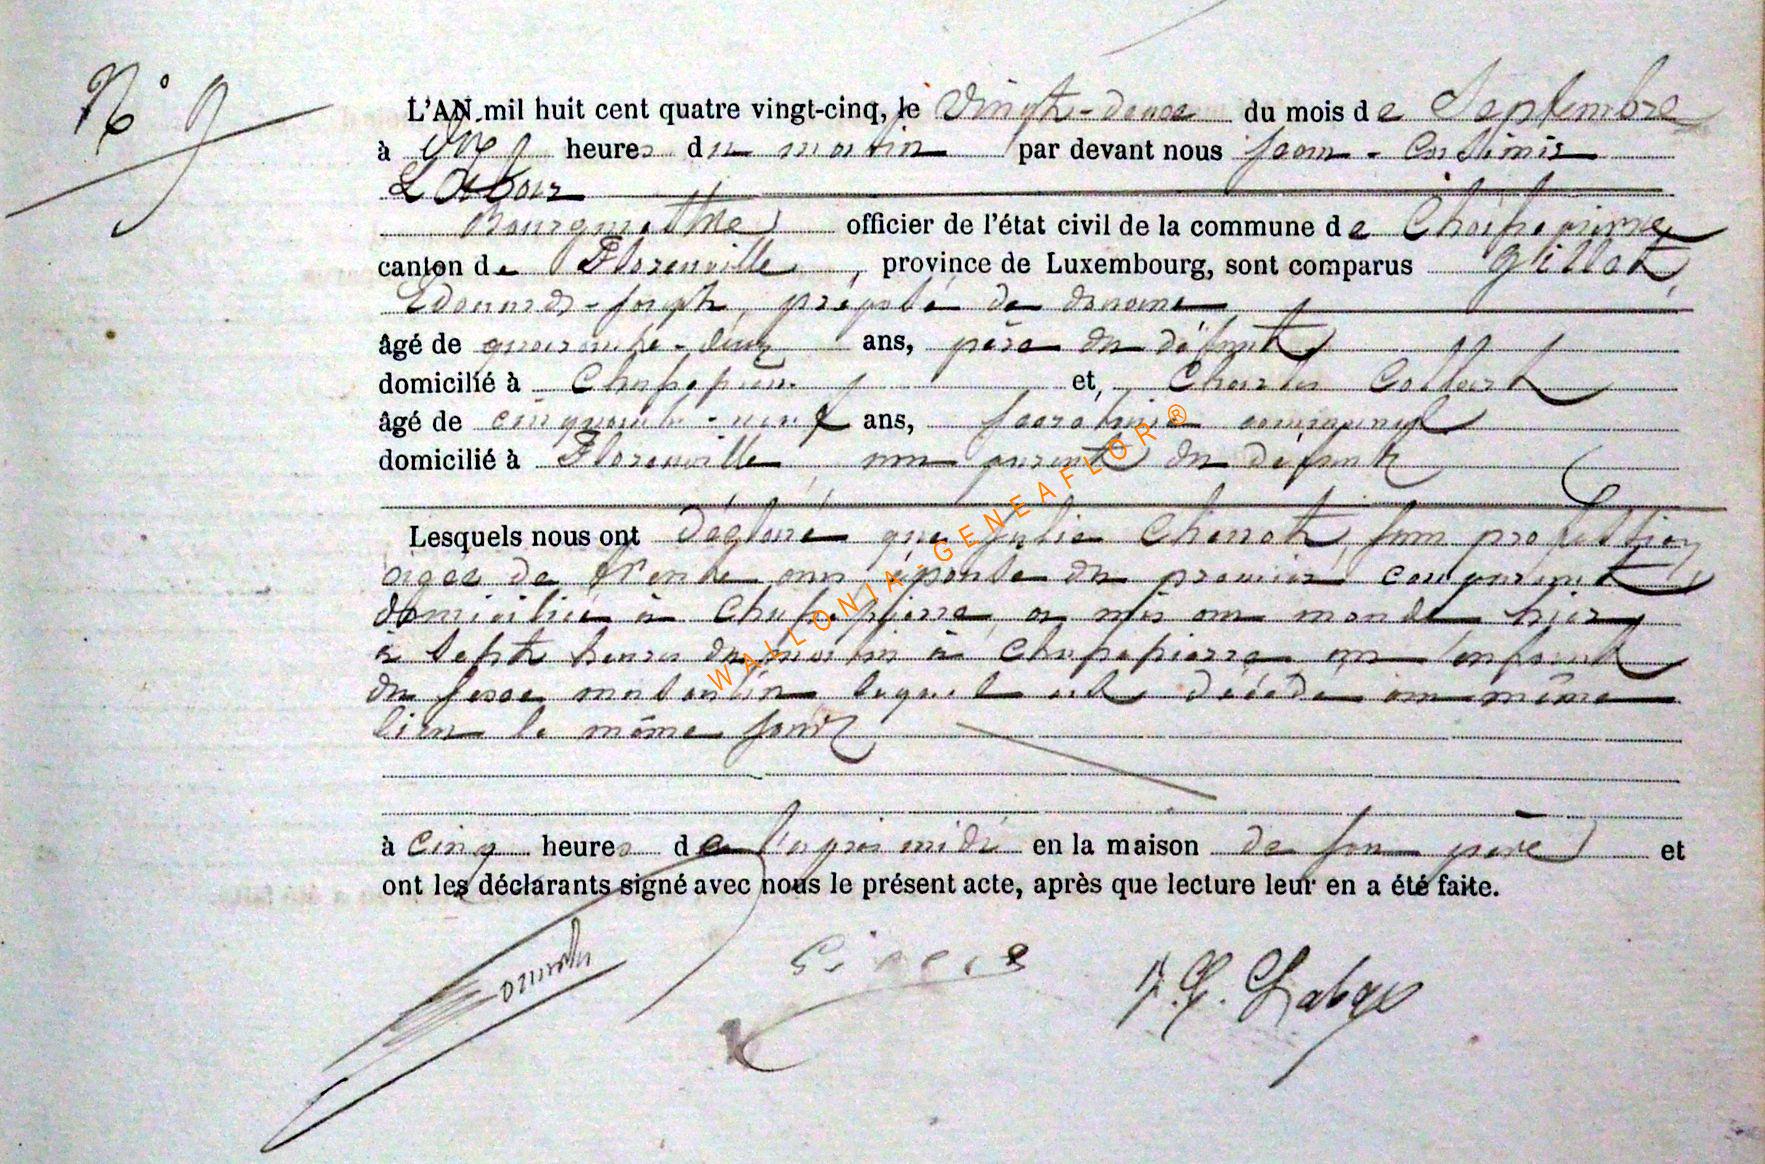 N° 9
L'AN mil huit cent quatre vingt-cinq, le Vingt-deux du mois de Septembre
à dix heures du matin par devant nous Jean-Casimir
Labar
Bourgmestre officier de l'état civil de la commune de Chassepierre
canton de Florenville, province de Luxembourg, sont comparus Gillet
Edouard-Joseph, préposé de douane
âgé de quarante-deux ans, père du défunt
domicilié à Chassepierre et, Charles Collart
âgé de cinquante-neuf ans, secrétaire communal
domicilié à Florenville, non parent du défunt
Lesquels nous ont déclaré que Julie Chenot, sans profession,
âgée de trente ans épouse du premier comparant,
domiciliée à Chassepierre, a mis au monde hier
à sept heures du matin à Chassepierre un enfant
du sexe masculin lequel est décédé au même
lieu le même jour
à cinq heures de l'après midi en la maison de son père et
ont les déclarants signé avec nous le présent acte, après que lecture leur en a été faite.
J. C. Labar
WALLONIA-GENEAFLOR®